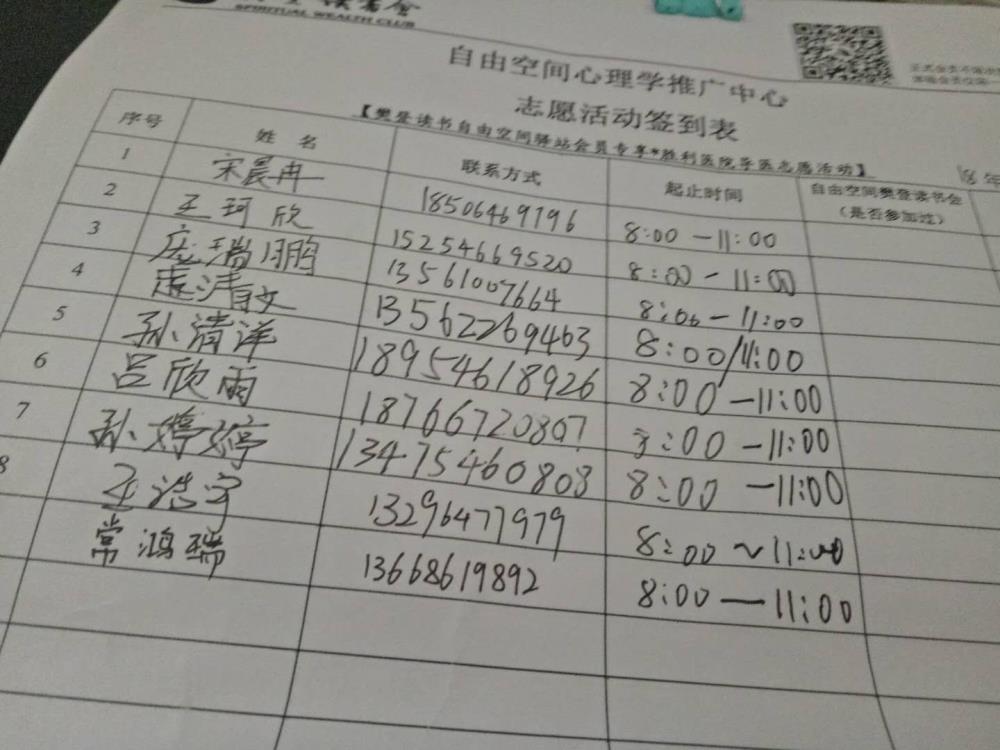 SPIRITUAL WEALTH CLUB
自由空间心理学推广中心
志愿活动签到表
【樊登读书自由空间驿站会员专享*胜利医院导医志愿活动】
序号 姓名 联系方式 起止时间 自由空间樊登读书会（是否参加过）
1 宋晨冉 18506469196 8:00—11:00
2 王珂欣 15254669520 8:00-11:00
3 庞瑞鹏 13561007664 8:00-11:00
4 清文 13562269463 8:00/11:00
5 孙清洋 18954618926 8:00-11:00
6 吕欣雨 18766720807 8:00-11:00
7 孙婷婷 13475460808 8:00-11:00
8 王浩宇 13296477979 8:00~11:00
常鸿瑞 13668619892 8:00—11:00